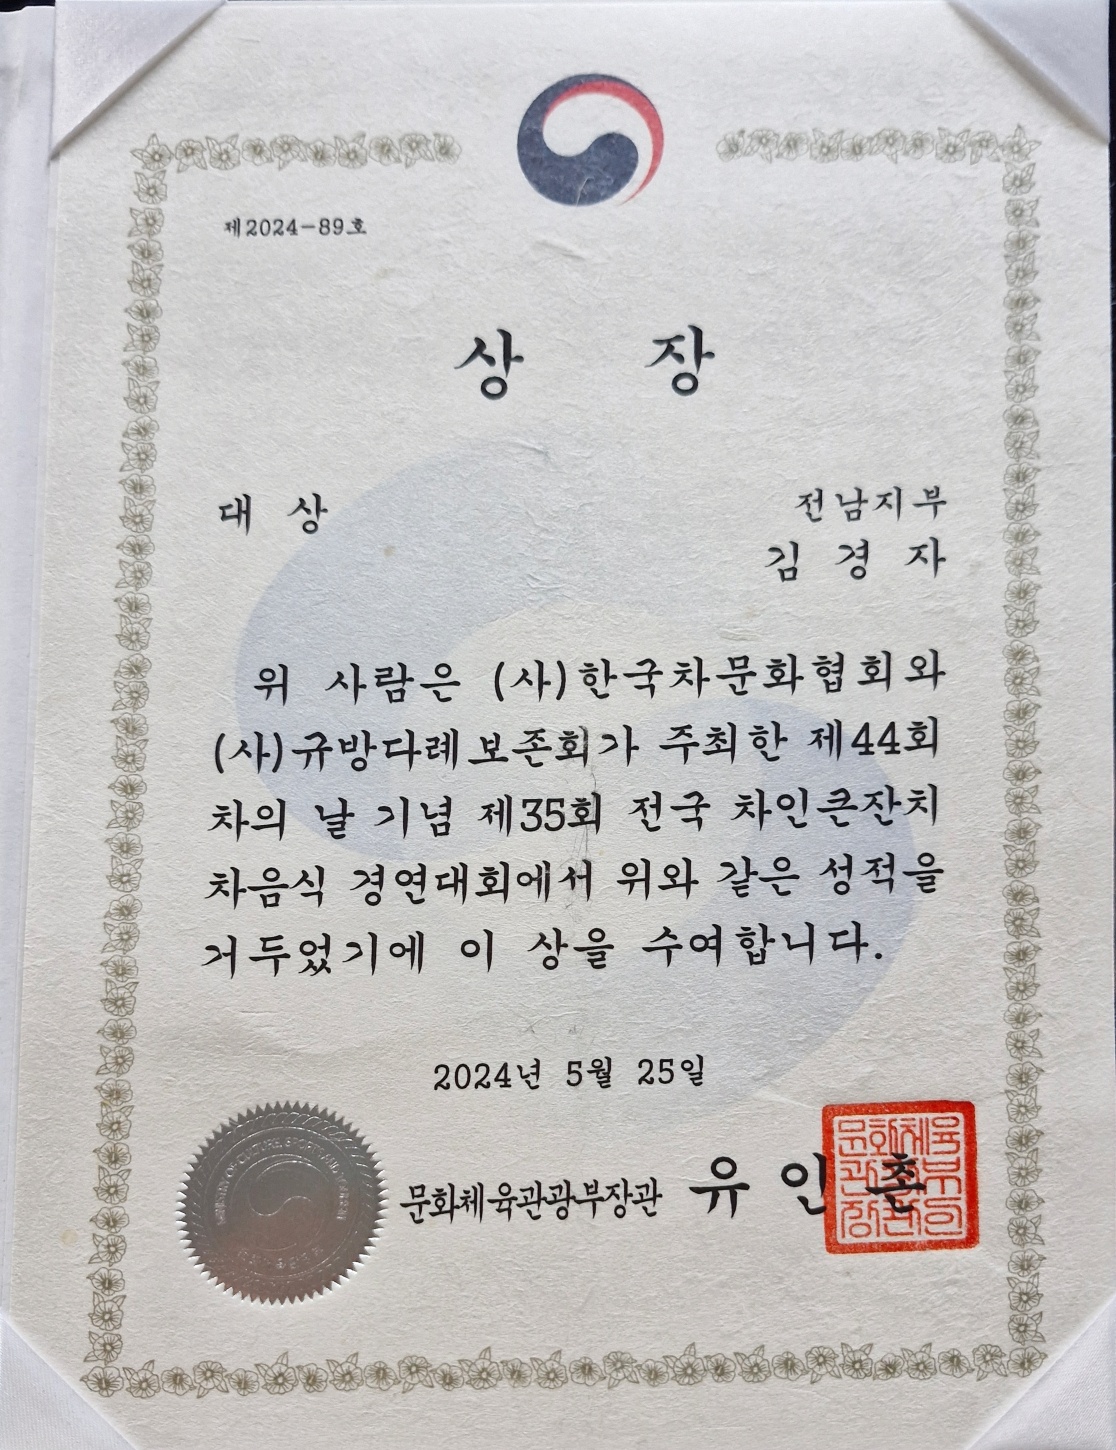 제2024-89호
상 장
대 상
전남지부
김 경 자
위 사람은 (사)한국차문화협회와
(사)규방다례보존회가 주최한 제44회
차의 날 기념 제35회 전국 차인큰잔치
차음식 경연대회에서 위와 같은 성적을
거두었기에 이 상을 수여합니다.
2024년 5월 25일
MINISTRY OF CULTURE, SPORTS AND TOURISM
문화체육관광부장관 유 인 촌
문화체육
관광부
장관의인